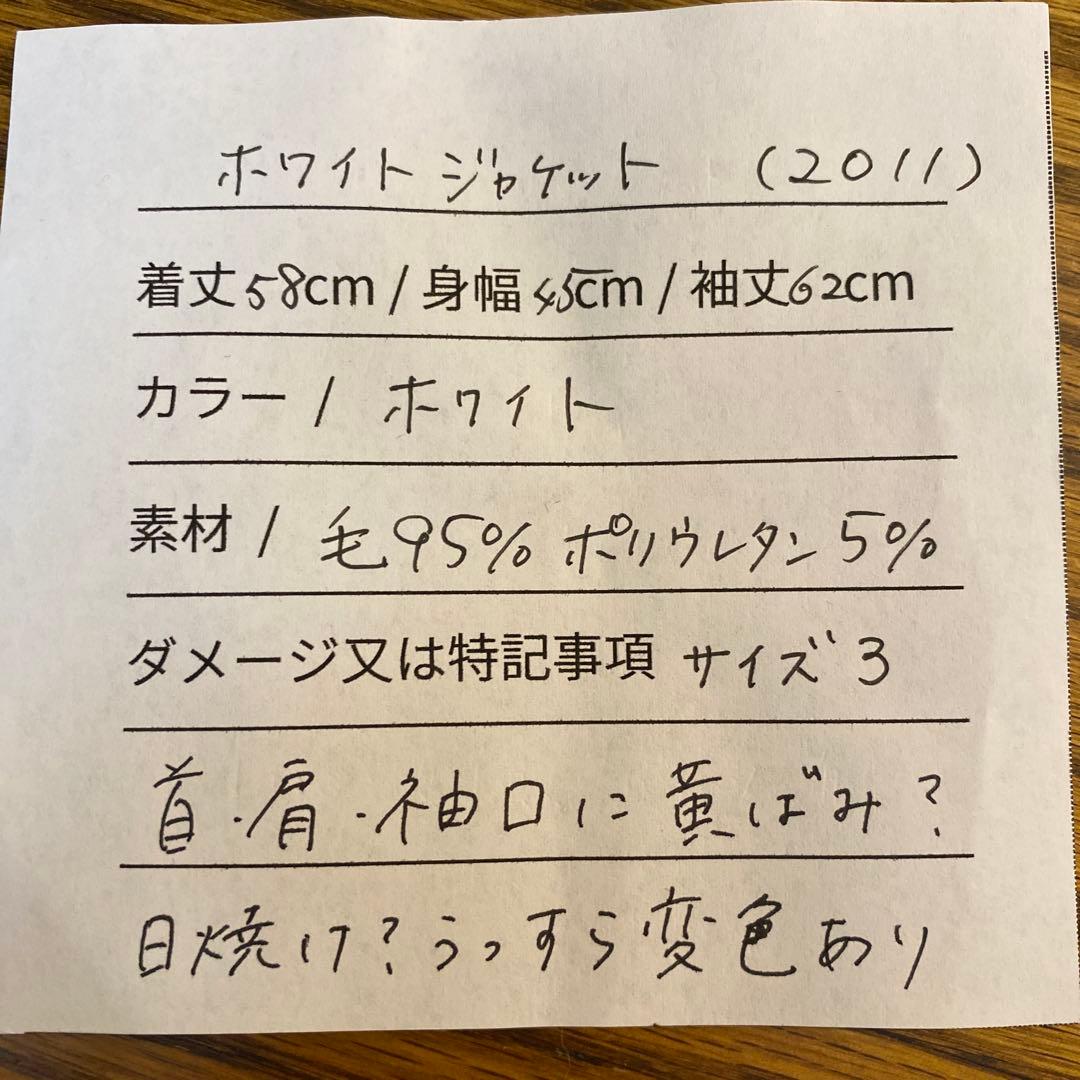 ホワイトジャケット (2011)
着丈58cm / 身幅45cm / 袖丈62cm
カラー / ホワイト
素材 / 毛95% ポリウレタン5%
ダメージ又は特記事項 サイズ3
首・肩・袖口に黄ばみ?
日焼け?うっすら変色あり